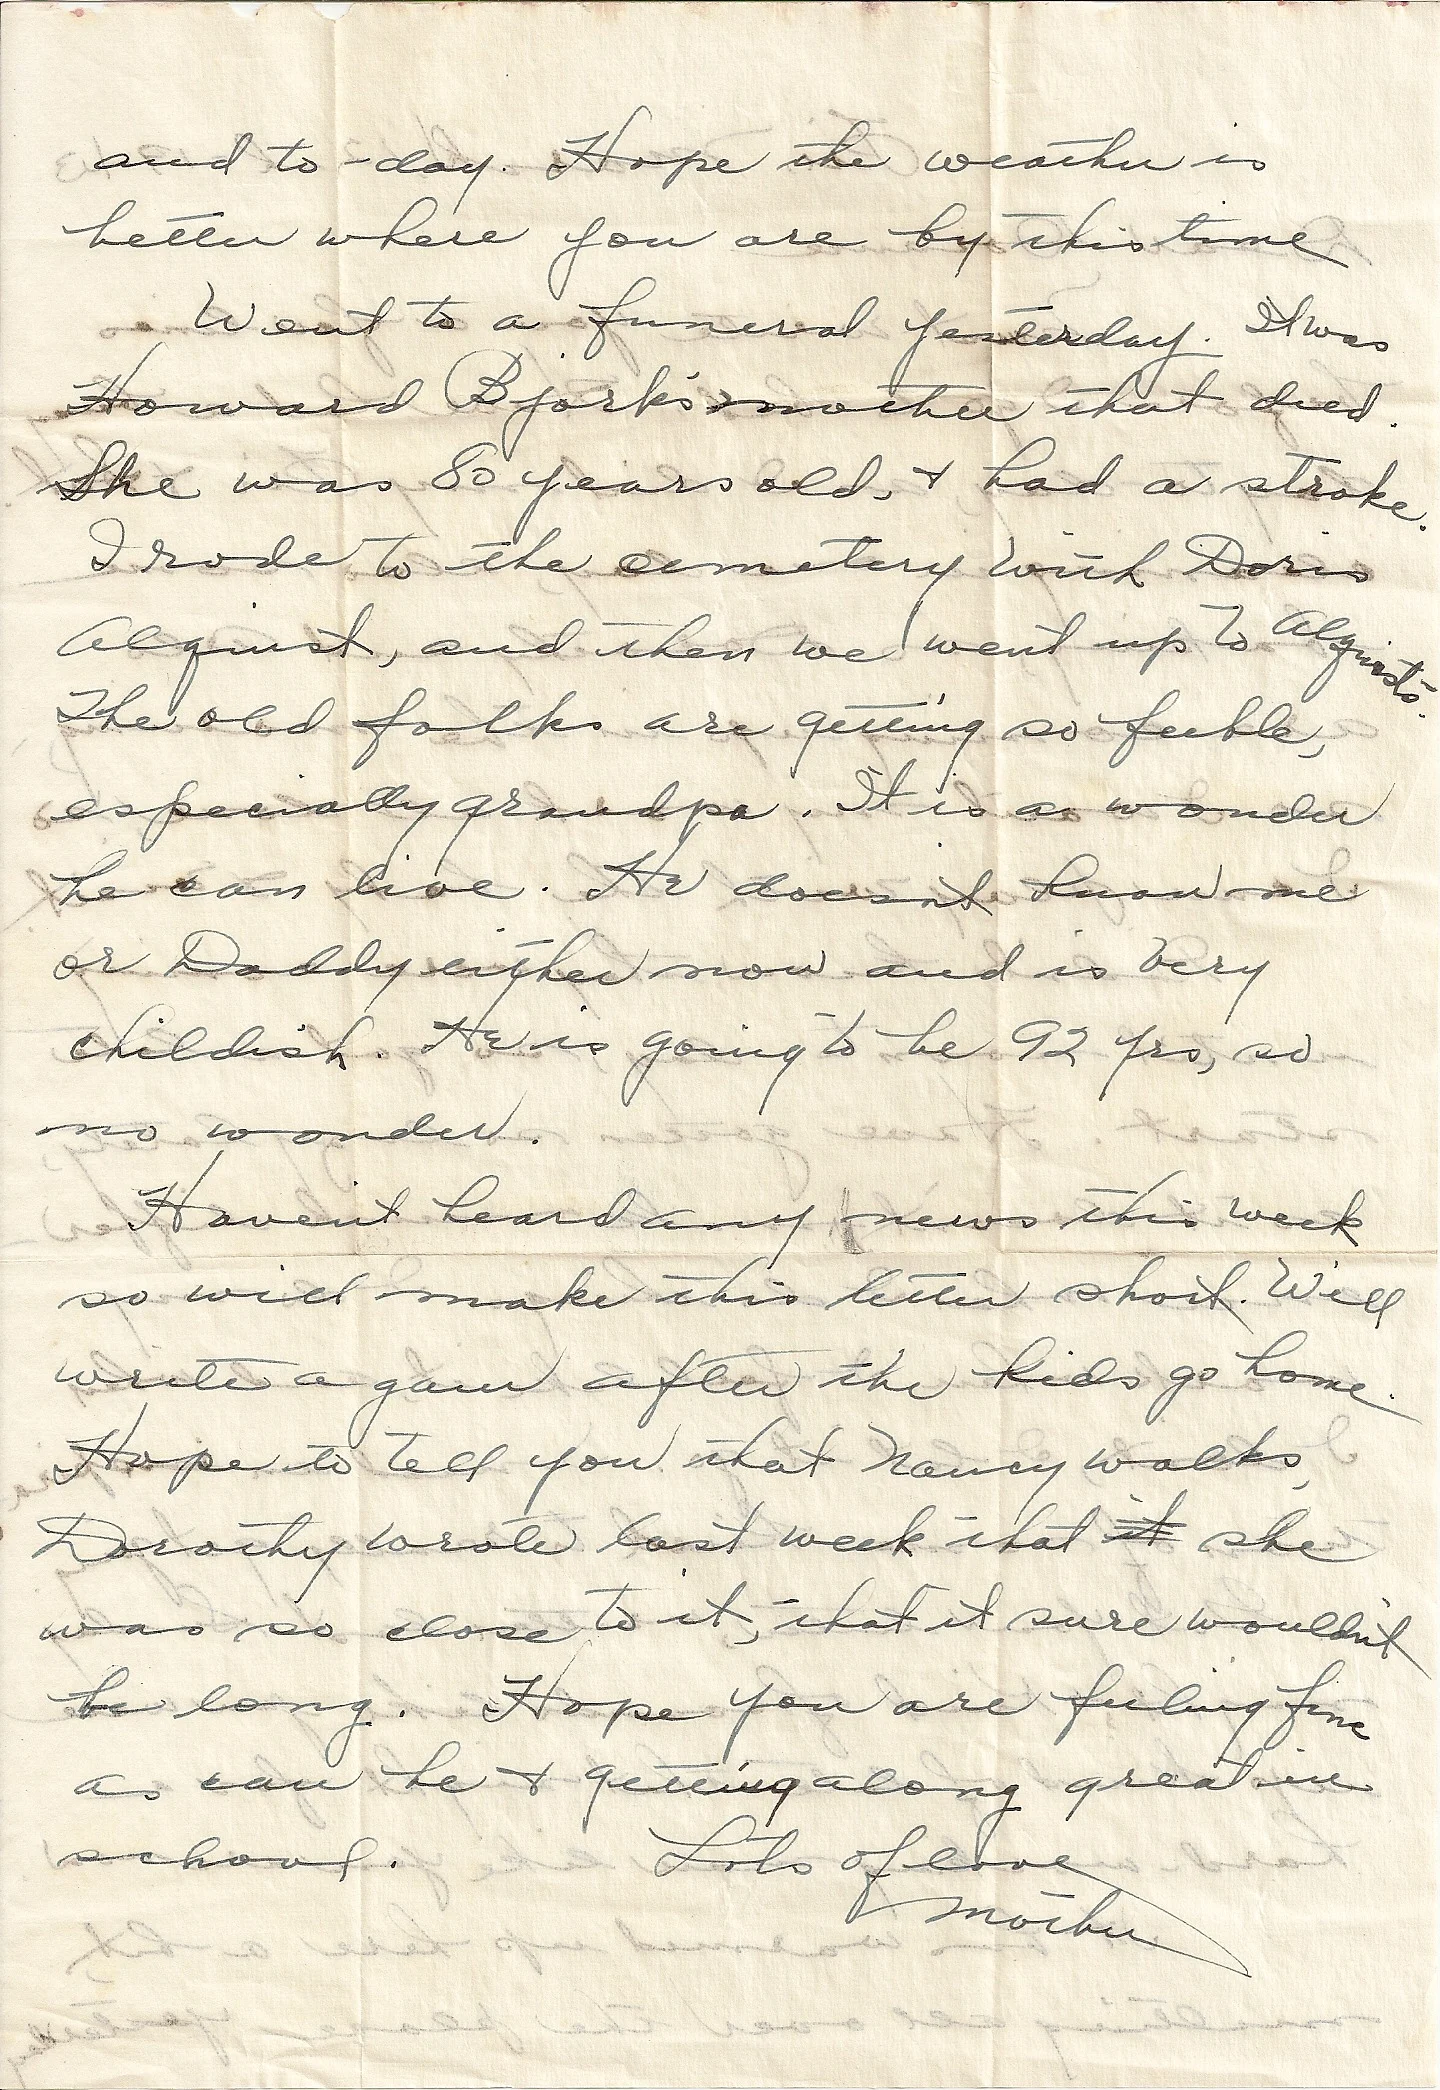 and to-day. Hope the weather is
better where you are by this time
Went to a funeral yesterday. It was
Howard Bjork's mother that died.
She was 80 years old, & had a stroke.
I rode to the cemetery with Doris
Alquist, and then we went up to Alquists.
The old folks are getting so feeble,
especially grandpa. It is a wonder
he can live. He doesn't know me
or Daddy either now and is very
childish. He is going to be 92 yrs, so
no wonder.
Haven't heard any news this week
so will make this letter short. Will
write again after the kids go home.
Hope to tell you that Nancy walks,
Dorothy wrote last week that it she
was so close to it, that it sure wouldn't
be long. Hope you are feeling fine
as can be & getting along great in
school. Lots of love
Mother